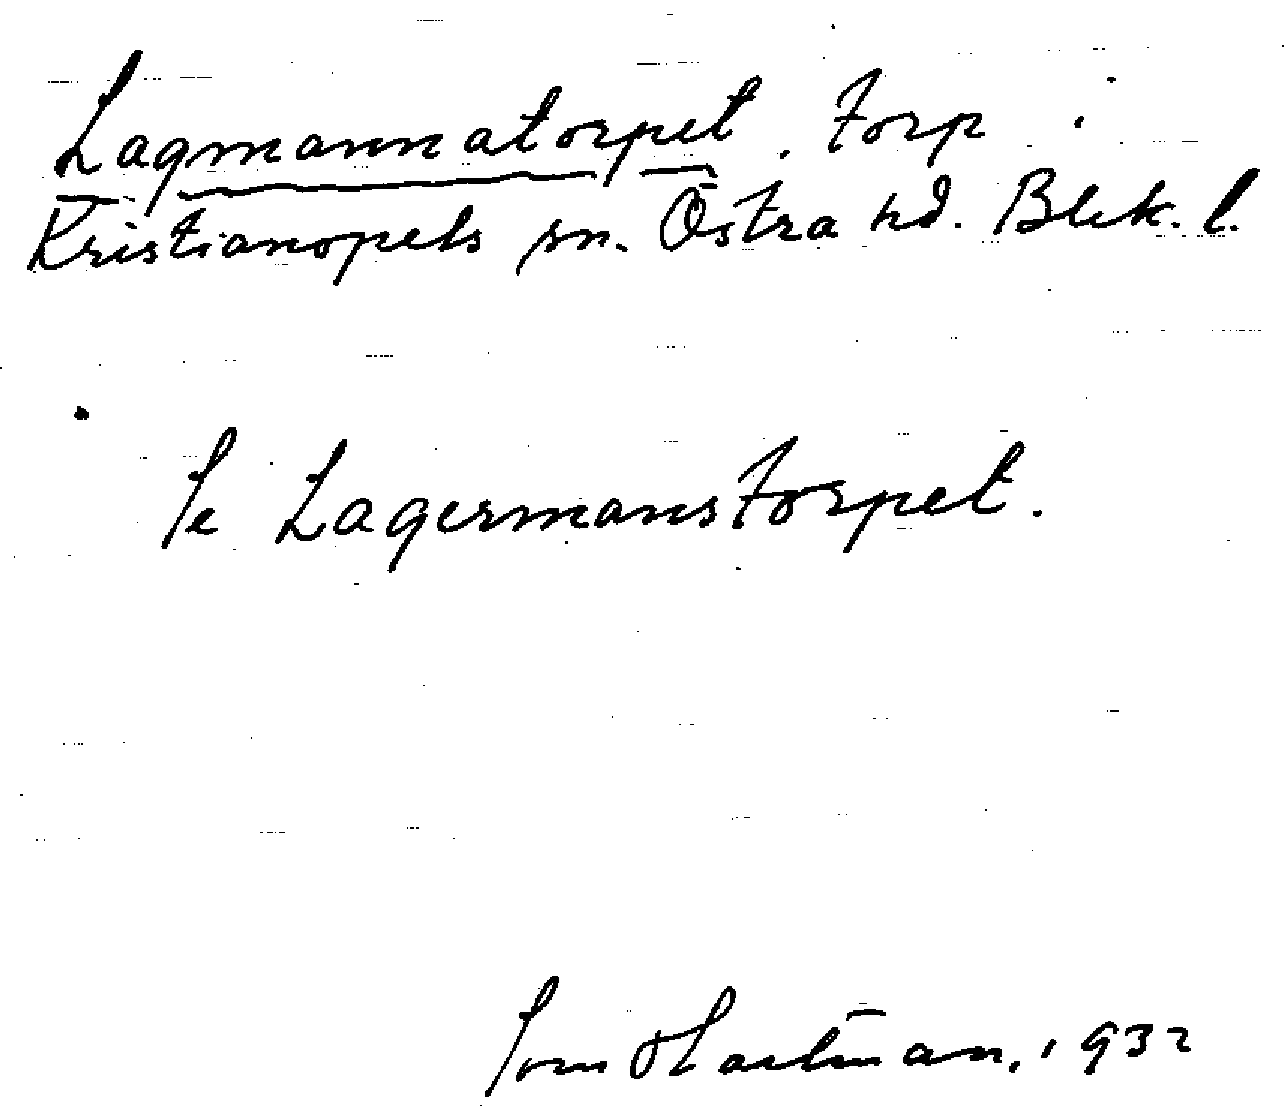 Lagmannatorpet. torp
Kristianopels sn. Östra hd. Blek. l.
Se Lagermanstorpet.
Hartman, 1932